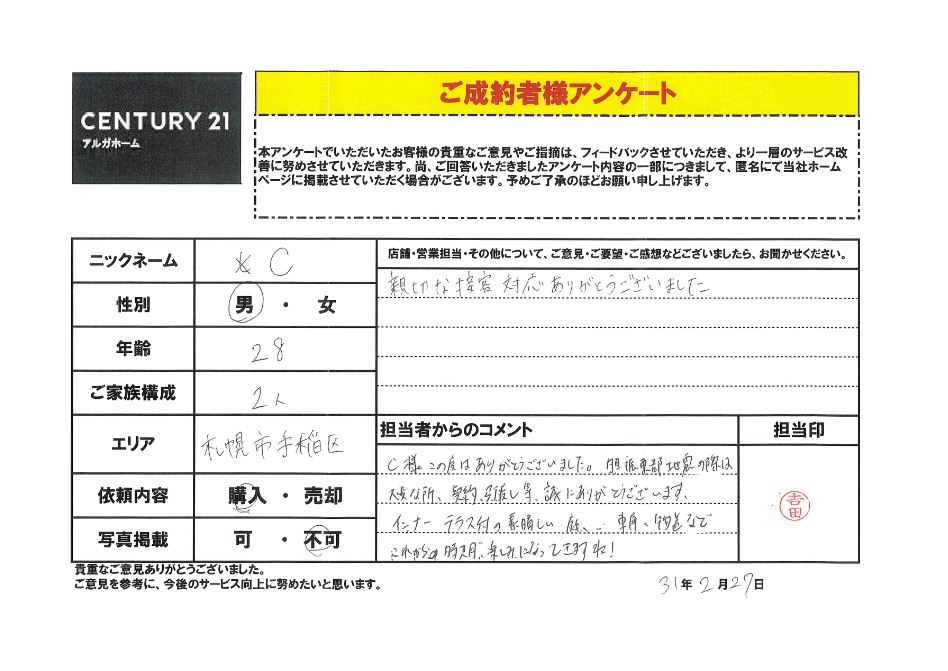 CENTURY 21
アルガホーム
ご成約者様アンケート
本アンケートでいただいたお客様の貴重なご意見やご指摘は、フィードバックさせていただき、より一層のサービス改
善に努めさせていただきます。尚、ご回答いただきましたアンケート内容の一部につきまして、匿名にて当社ホーム
ページに掲載させていただく場合がございます。予めご了承のほどお願い申し上げます。
ニックネーム C
性別 男 ・ 女
年齢 28
ご家族構成 2人
エリア 札幌市手稲区
依頼内容 購入 ・ 売却
写真掲載 可 ・ 不可
店舗・営業担当・その他について、ご意見・ご要望・ご感想などございましたら、お聞かせください。
親切な接客対応ありがとうございました
担当者からのコメント 担当印
C様 この度はありがとうございました。胆振東部地震の際は
大変な所、契約、引渡し等、誠にありがとうございます。
インナーテラス付の素晴しい庭、
これからの 楽しみになってきますね!
吉田
貴重なご意見ありがとうございました。
ご意見を参考に、今後のサービス向上に努めたいと思います。
31年 2月 27日